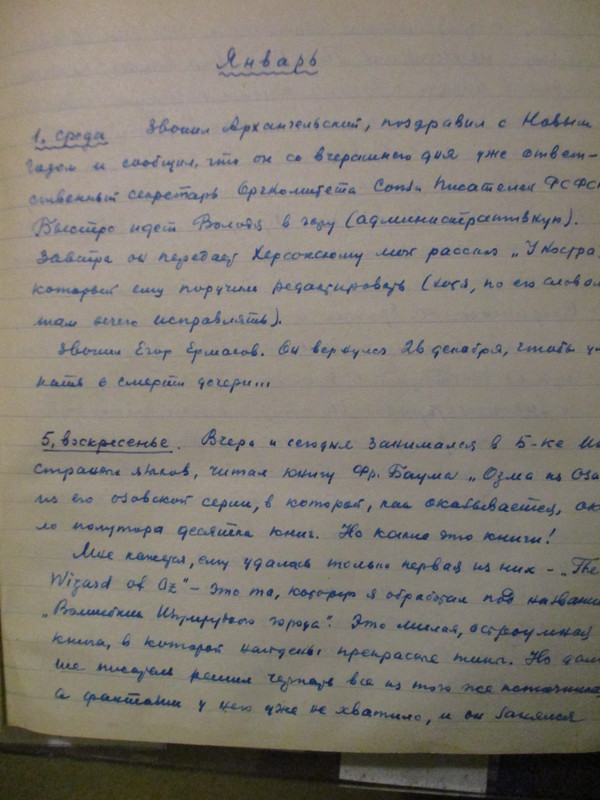 Январь
1. среда Звонил Архангельский, поздравил с Новым
Годом и сообщил, что он со вчерашнего дня уже ответ-
ственный секретарь Оргкомитета Союза Писателей РСФСР
Быстро идет Володя в гору (административную).
Завтра он передает Херсонскому мой рассказ „У костра,
который ему поручили редактировать (хотя, по его словам
там нечего исправлять).
Звонил Егор Ермаков. Он вернулся 26 декабря, чтобы уз
нать о смерти дочери...
5, воскресенье. Вчера и сегодня занимался в Б-ке Ин
странных языков, читал книгу Фр. Баума „Озма из Оза
из его озовской серии, в которой, как оказывается, ок
ло полутора десятка книг. Но какие это книги!
Мне кажется, ему удалась только первая из них – „The
Wizard of Oz" – это та, которую я обработал под названи
„Волшебник Изумрудного города". Это милая, остроумная
книга, в которой найдены прекрасные типы. Но даль
ше писатель решил черпать все из того же источника,
а фантазии у него уже не хватило, и он занялся